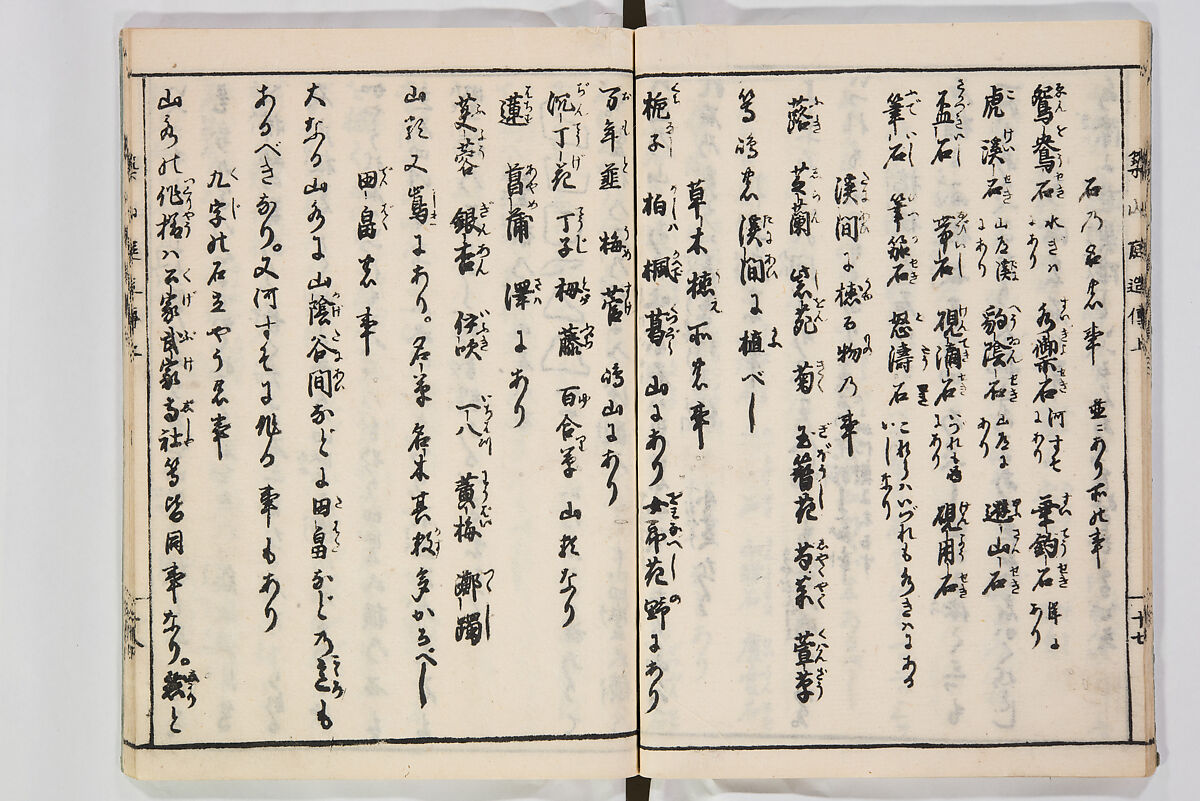 築山庭造傳上
十七
石乃名の事 並ニあり所の事
鴛鴦石 水ぎハにあり 水楽石 河すそにあり 垂釣石 岸にあり
虎溪石 山辺溪にあり 豹陰石 山辺にあり 遊山石
盃石 帯石 硯滴石 いづれも海にあり 硯用石
筆石 筆架石 怒濤石 これらハいづれも水きハにあるいしなり
溪間に植る物乃事
蕗 芝蘭 紫苑 菊 玉簪花 芍薬 萱草
等嶋の溪間に植べし
草木植所の事。
梔子 柏 楓 葛 山にあり 女郎花 野にあり
万年韮 梅 菅 嶋山にあり
沉丁花 丁子 栂 藤 百合草 山せなり
蓮 菖蒲 澤にあり
芙蓉 銀杏 伊吹 一八 黄梅 躑躅
山路又嶌にあり。名草名木其数多かるべし
田畠の事
大なる山水に山陰谷間などに田畠などの意も
あるべきなり。又河すそに作る事もあり
九字の石立やうの事
山水の作様ハ公家武家寺社等皆同事なり。然と